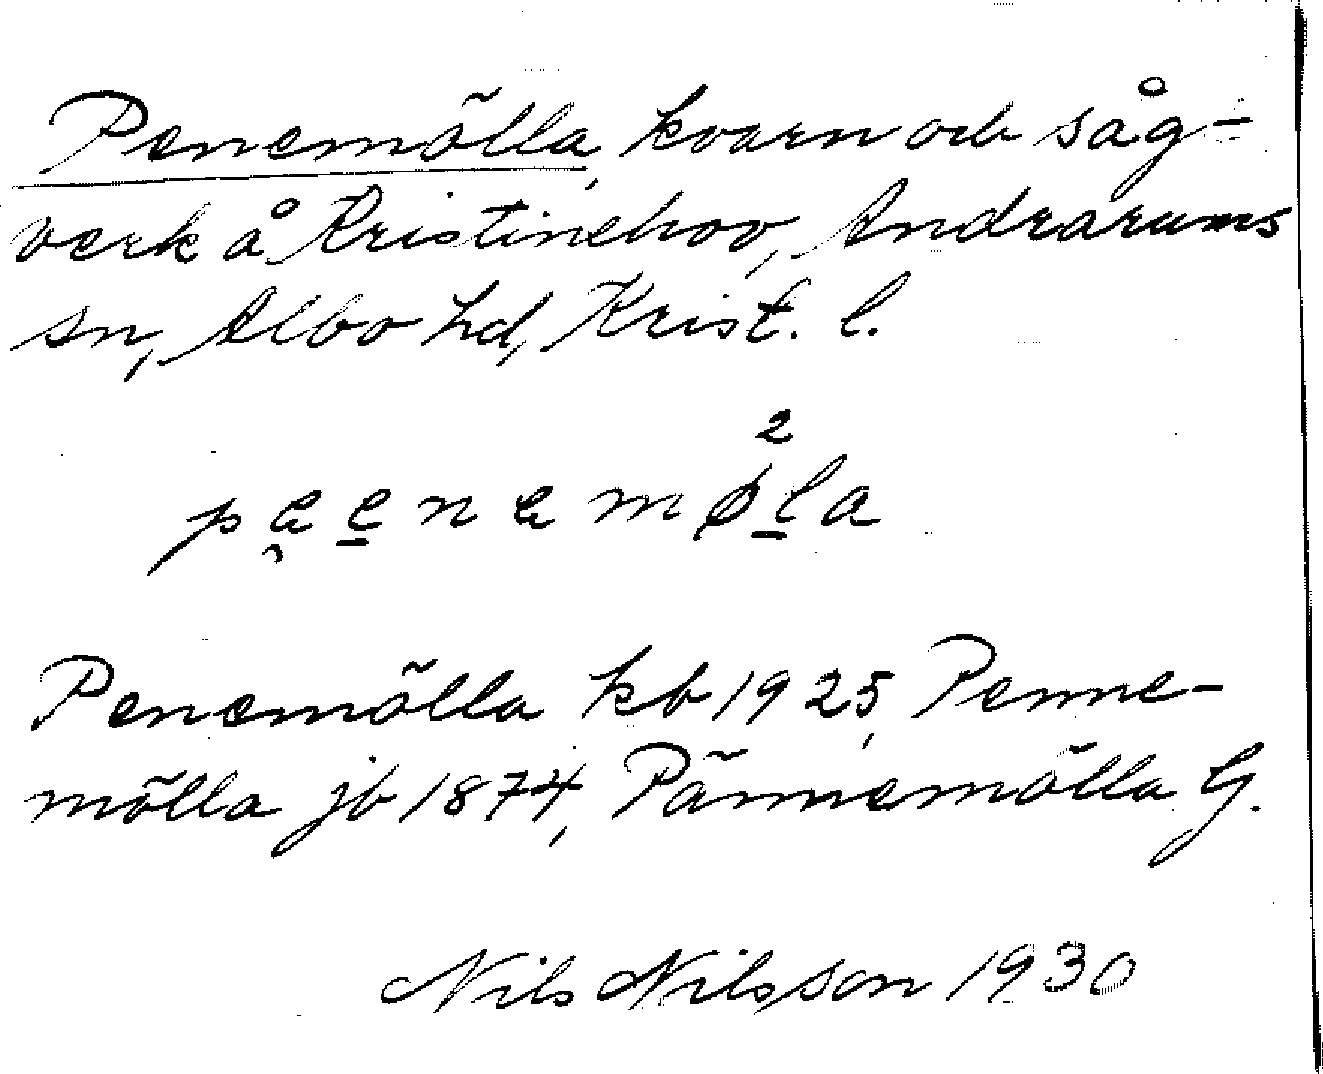 Penemölla, kvarn och såg-
verk å Kristinehov, Andrarums
sn, Albo hd, Krist. l.
2
Penemölla kb 1925, Penne-
mölla jb 1874, Pännemölla G.
Nils Nilsson 1930